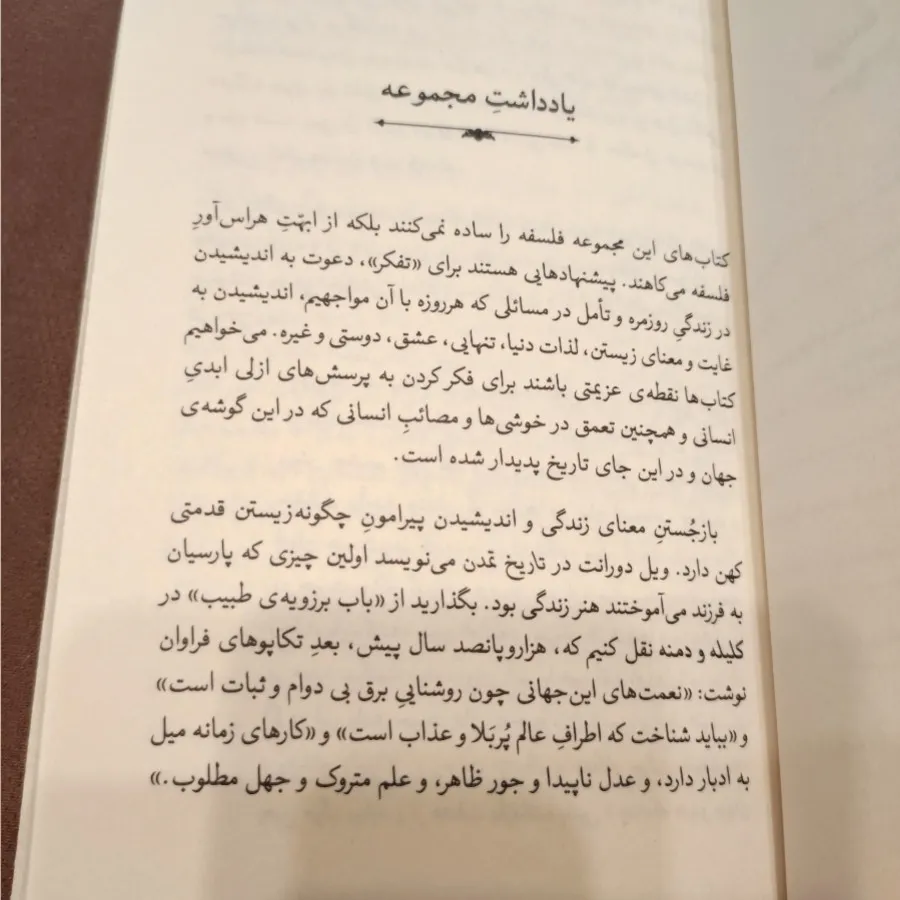 یادداشتِ مجموعه
کتاب‌های این مجموعه فلسفه را ساده نمی‌کنند بلکه از ابهّتِ هراس‌آورِ
فلسفه می‌کاهند. پیشنهادهایی هستند برای «تفکر»، دعوت به اندیشیدن
در زندگیِ روزمره و تأمل در مسائلی که هرروزه با آن مواجهیم، اندیشیدن به
غایت و معنای زیستن، لذات دنیا، تنهایی، عشق، دوستی و غیره. می‌خواهیم
کتاب‌ها نقطه‌ی عزیمتی باشند برای فکر کردن به پرسش‌های ازلی ابدیِ
انسانی و همچنین تعمق در خوشی‌ها و مصائبِ انسانی که در این گوشه‌ی
جهان و در این جای تاریخ پدیدار شده است.
بازجُستنِ معنای زندگی و اندیشیدن پیرامونِ چگونه‌زیستن قدمتی
کهن دارد. ویل دورانت در تاریخ تمدن می‌نویسد اولین چیزی که پارسیان
به فرزند می‌آموختند هنر زندگی بود. بگذارید از «باب برزویه‌ی طبیب» در
کلیله و دمنه نقل کنیم که، هزاروپانصد سال پیش، بعدِ تکاپوهای فراوان
نوشت: «نعمت‌های این‌جهانی چون روشناییِ برق بی دوام و ثبات است»
و «بباید شناخت که اطرافِ عالم پُربَلا و عذاب است» و «کارهای زمانه میل
به ادبار دارد، و عدل ناپیدا و جور ظاهر، و علم متروک و جهل مطلوب.»